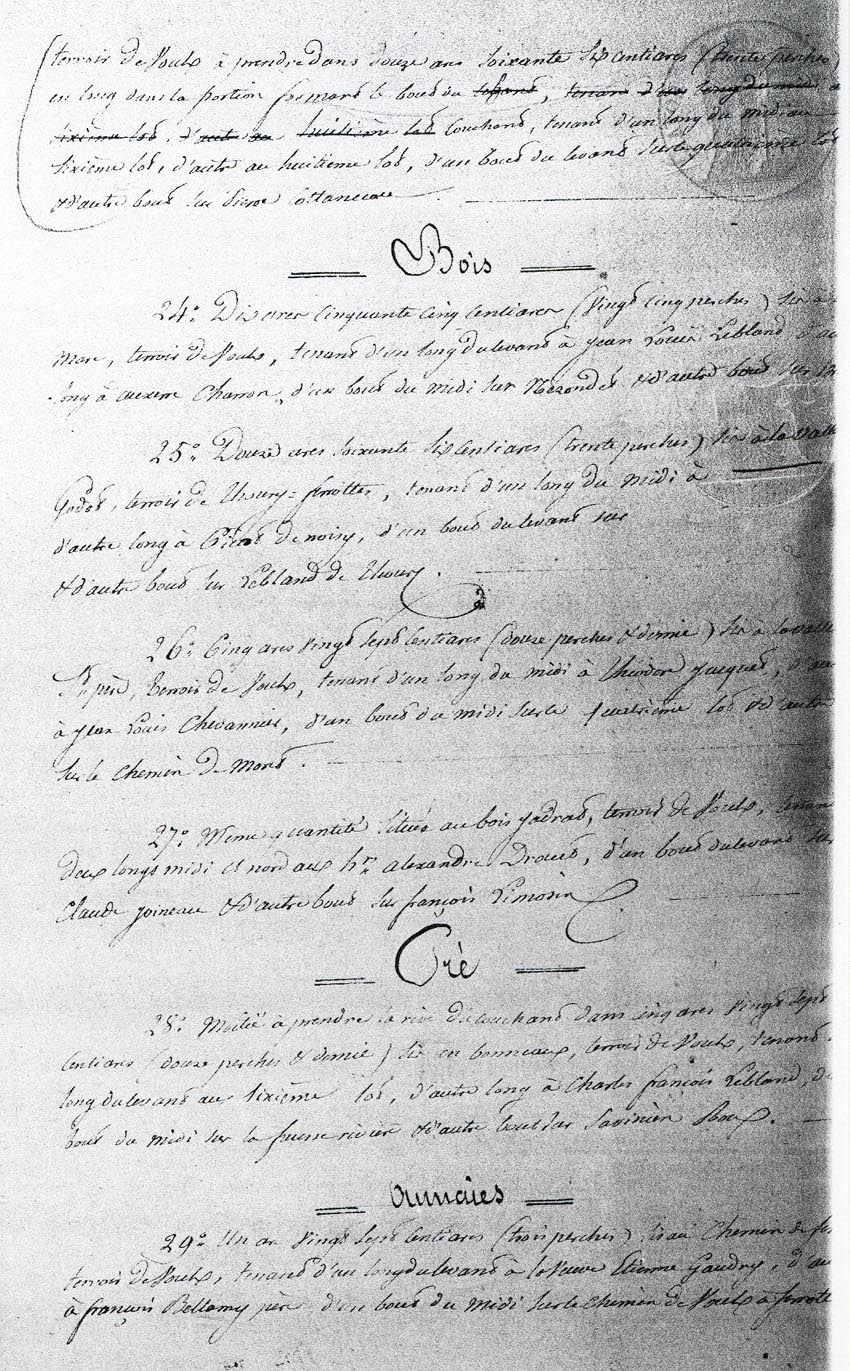 terroir de Voulx à prendre dans douze ares soixante six centiares (trente perches)
en long dans la portion formant le bout du levant, tenant d'un long du midi au
sixième lot, d'autre au huitième lot couchant, tenant d'un long du midi au
sixième lot, d'autre au huitième lot, d'un bout du levant sur le quatrième lot
et d'autre bout sur Cottanceau
Bois
24° Dix ares cinquante cinq centiares (vingt cinq perches) sis à
mare, terroir de Voulx, tenant d'un long du levant à Jean Louis Leblanc d'au
long à auxerre Charron, d'un bout du midi sur et d'autre bout sur
25° Douze ares soixante six centiares (trente perches) sis à la vallée
Godot, terroir de Thoury=ferottes, tenant d'un long du midi à
d'autre long à de noisy, d'un bout du levant sur
et d'autre bout sur Leblanc de Thoury.
26° Cinq ares vingt sept centiares (douze perches et demie) sis à la vallée
St père, terroir de Voulx, tenant d'un long du midi à théodore Jacquet, d'au
à Jean Louis Chevannier, d'un bout du midi sur le quatrième lot et d'autre
sur le chemin de
27° Même quantité située au bois terroir de Voulx, tenant
deux longs midi et nord aux hers alexandre Drouet, d'un bout du levant sur
Claude Joineau et d'autre bout sur françois Limosin
Pré
28° Moitié à prendre la rive du couchant dans cinq ares vingt sept
centiares (douze perches et demie) sis en bonneaux, terroir de Voulx, tenant
long du levant au sixième lot, d'autre long à Charles françois Leblanc, d'
bout du midi sur la fausse rivière et d'autre bout sur Savinien Roux.
aunaies
29° Un are vingt sept centiares (trois perches) sis au chemin de
terroir de Voulx, tenant d'un long du levant à la Veuve Etienne Gaudry, d'au
à françois Bellamy père, d'un bout du midi sur le chemin de Voulx à ferotte